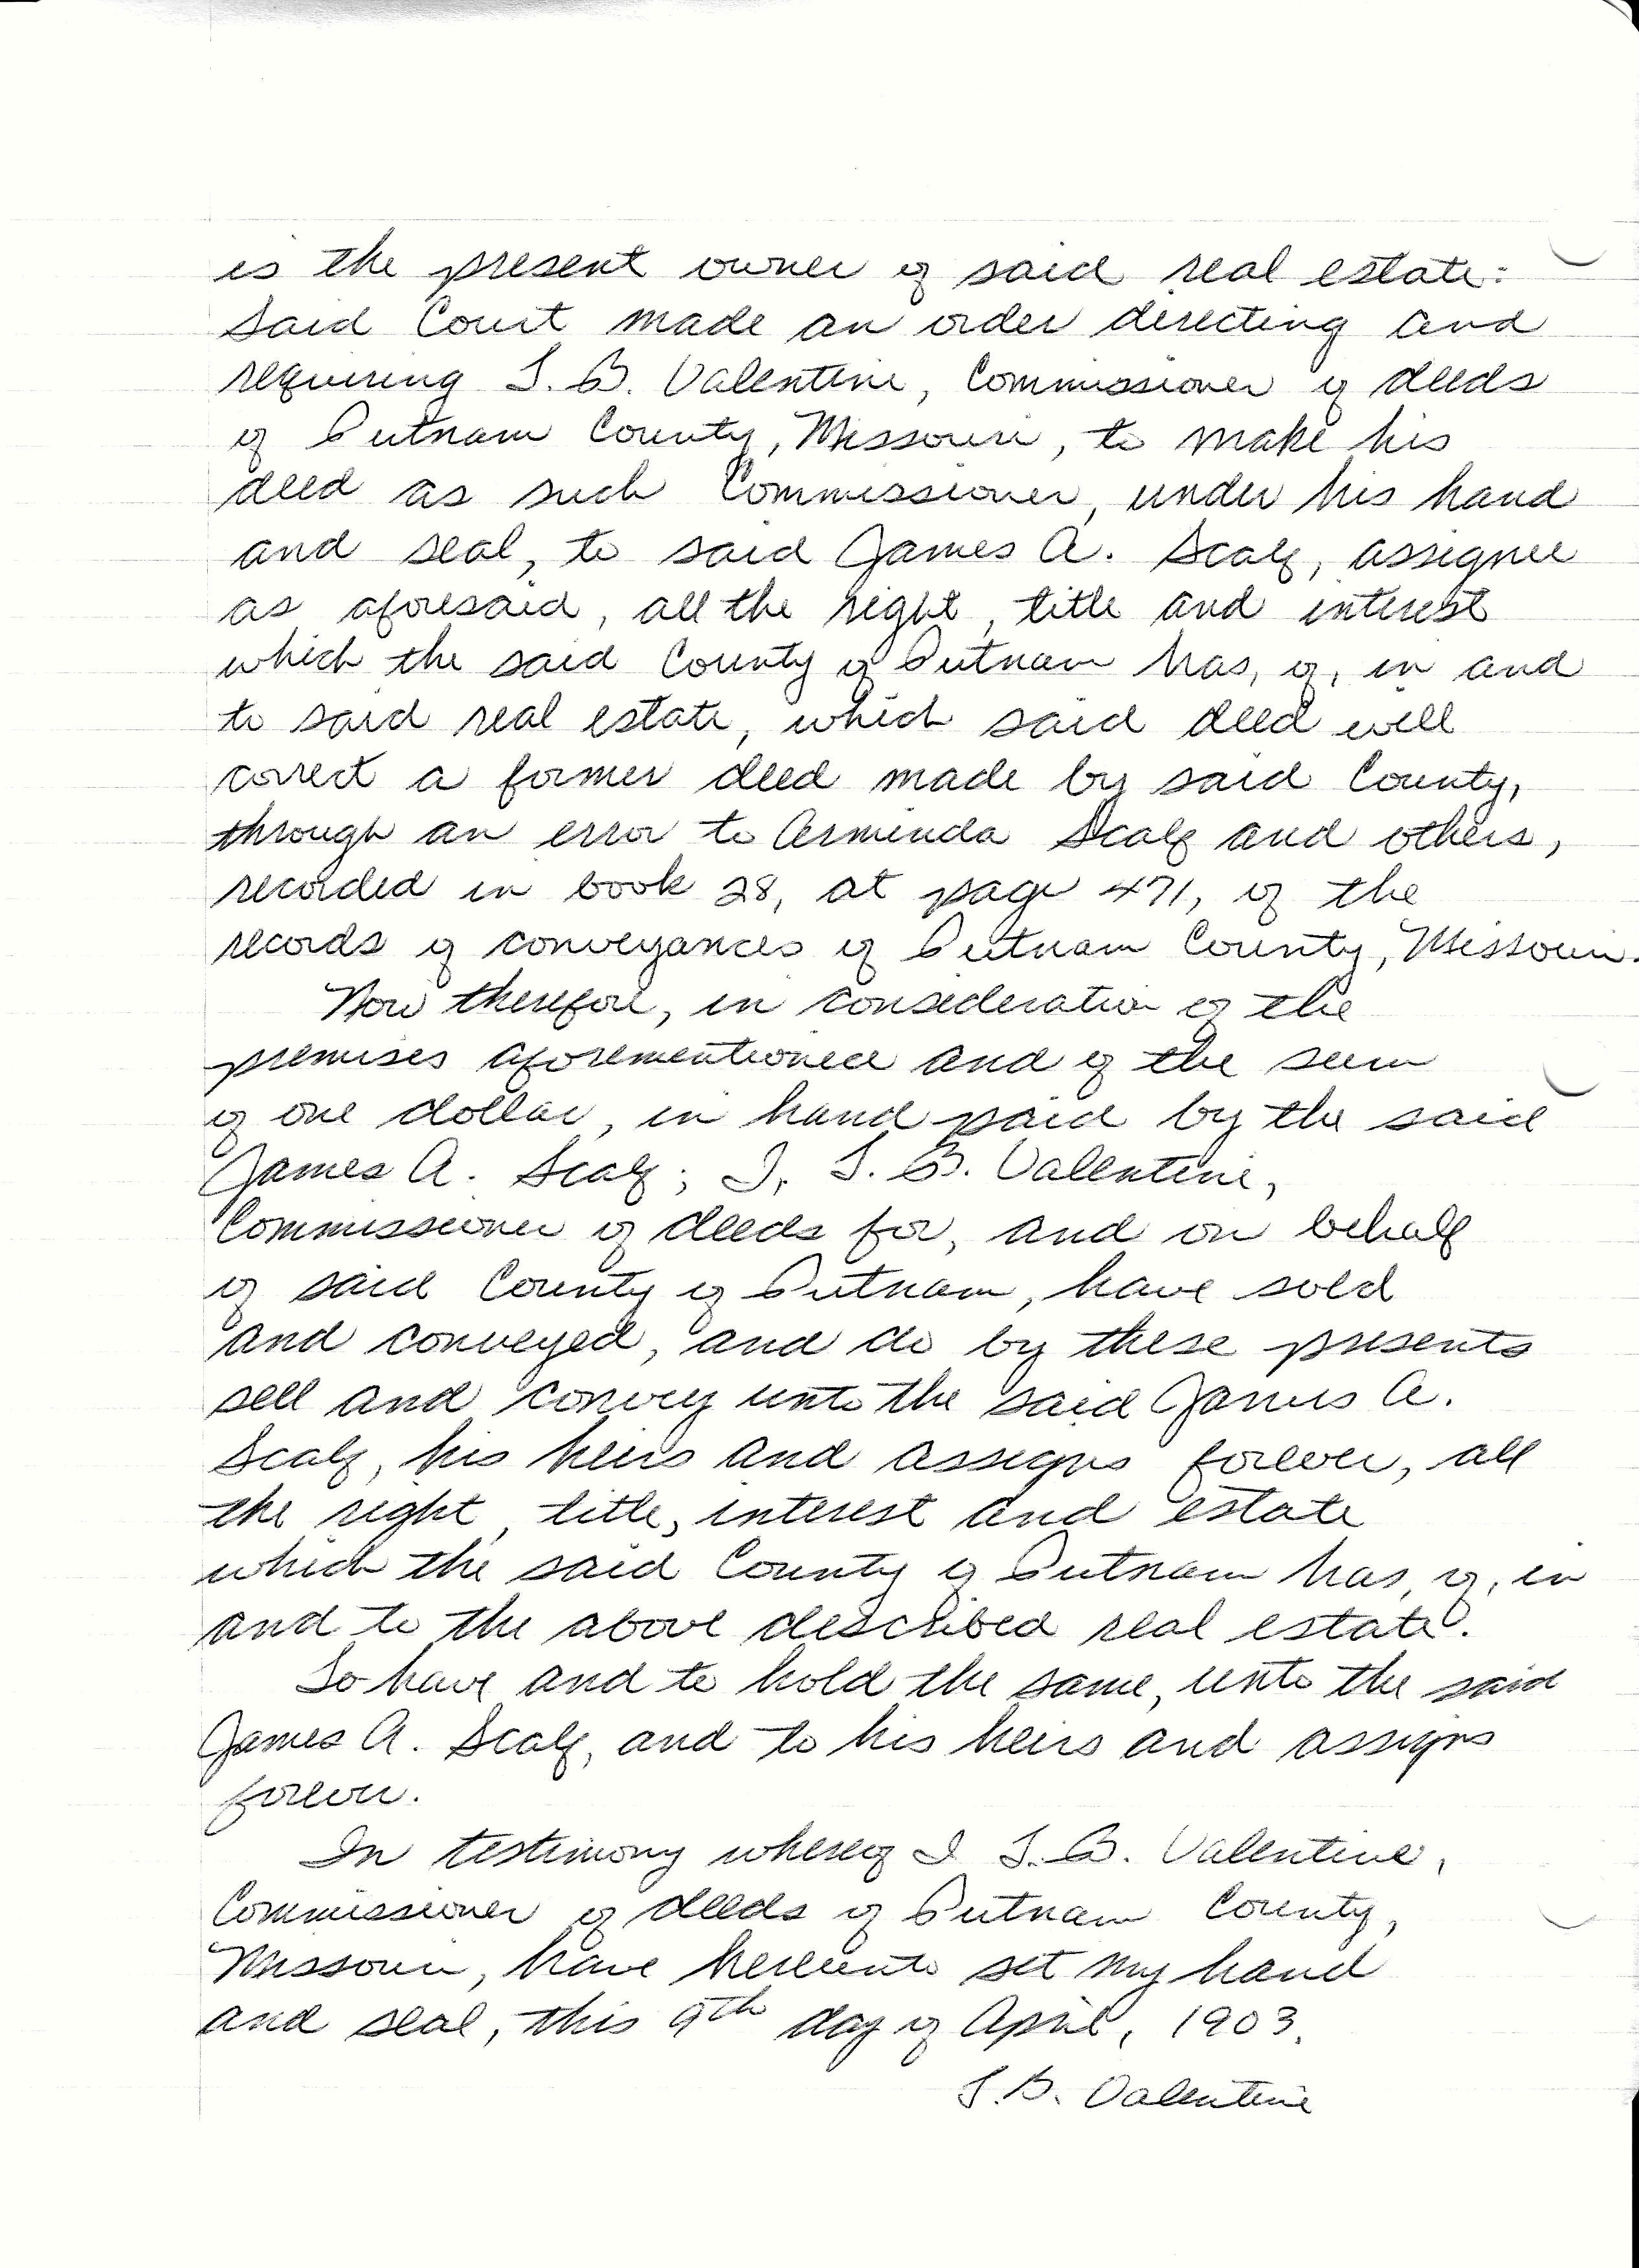 is the present owner of said real estate:
Said Court made an order directing and
requiring T. B. Valentine, Commissioner of deeds
of Putnam County, Missouri, to make his
deed as such Commissioner, under his hand
and seal, to said James A. Scalf, assignee
as aforesaid, all the right, title and interest
which the said County of Putnam has, of, in and
to said real estate, which said deed will
correct a former deed made by said County,
through an error to Arminda Scalf and others,
recorded in book 28, at page 471, of the
records of conveyances of Putnam County, Missouri.
Now therefore, in consideration of the
premises aforementioned and of the sum
of one dollar, in hand paid by the said
James A. Scalf; I, T. B. Valentine,
Commissioner of deeds for, and on behalf
of said County of Putnam, have sold
and conveyed, and do by these presents
sell and convey unto the said James A.
Scalf, his heirs and assigns forever, all
the right, title, interest and estate
which the said County of Putnam has, of, in
and to the above described real estate.
To have and to hold the same, unto the said
James A. Scalf, and to his heirs and assigns
forever.
In testimony whereof I T. B. Valentine,
Commissioner of deeds of Putnam County,
Missouri, have hereunto set my hand
and seal, this 9th day of April, 1903.
T. B. Valentine